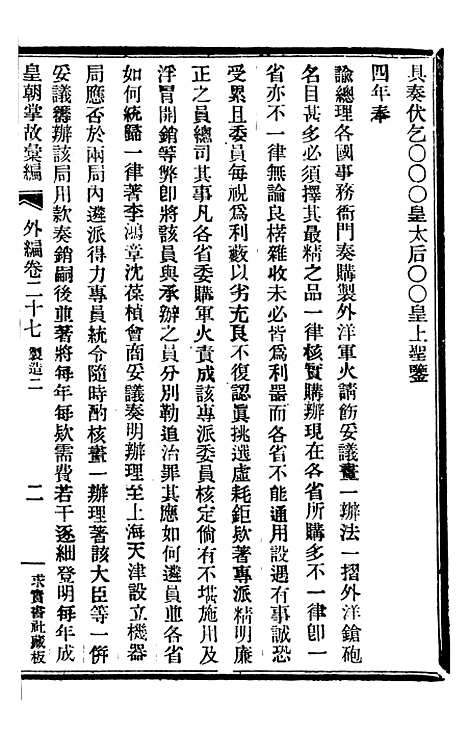 具奏伏乞〇〇〇皇太后〇〇皇上聖鑒
四年奉
諭總理各國事務衙門奏購製外洋軍火請飭妥議畫一辦法一摺外洋鎗砲
名目甚多必須擇其最精之品一律核實購辦現在各省所購多不一律卽一
省亦不一律無論良楛雜收未必皆爲利器而各省不能通用設遇有事誠恐
受累且委員每視爲利藪以劣充良不復認眞挑選虛耗鉅欵著專派精明廉
正之員總司其事凡各省委購軍火責成該專派委員核定倘有不堪施用及
浮冒開銷等弊卽將該員與承辦之員分別勒追治罪其應如何遴員並各省
如何統歸一律著李鴻章沈葆楨會商妥議奏明辦理至上海天津設立機器
局應否於兩局內遴派得力專員統令隨時酌核畫一辦理著該大臣等一併
妥議籌辦該局用款奏銷嗣後並著將每年每欵需費若干逐細登明每年成
皇朝掌故彙編
外編卷二十七
製造二
二
求實書社藏板